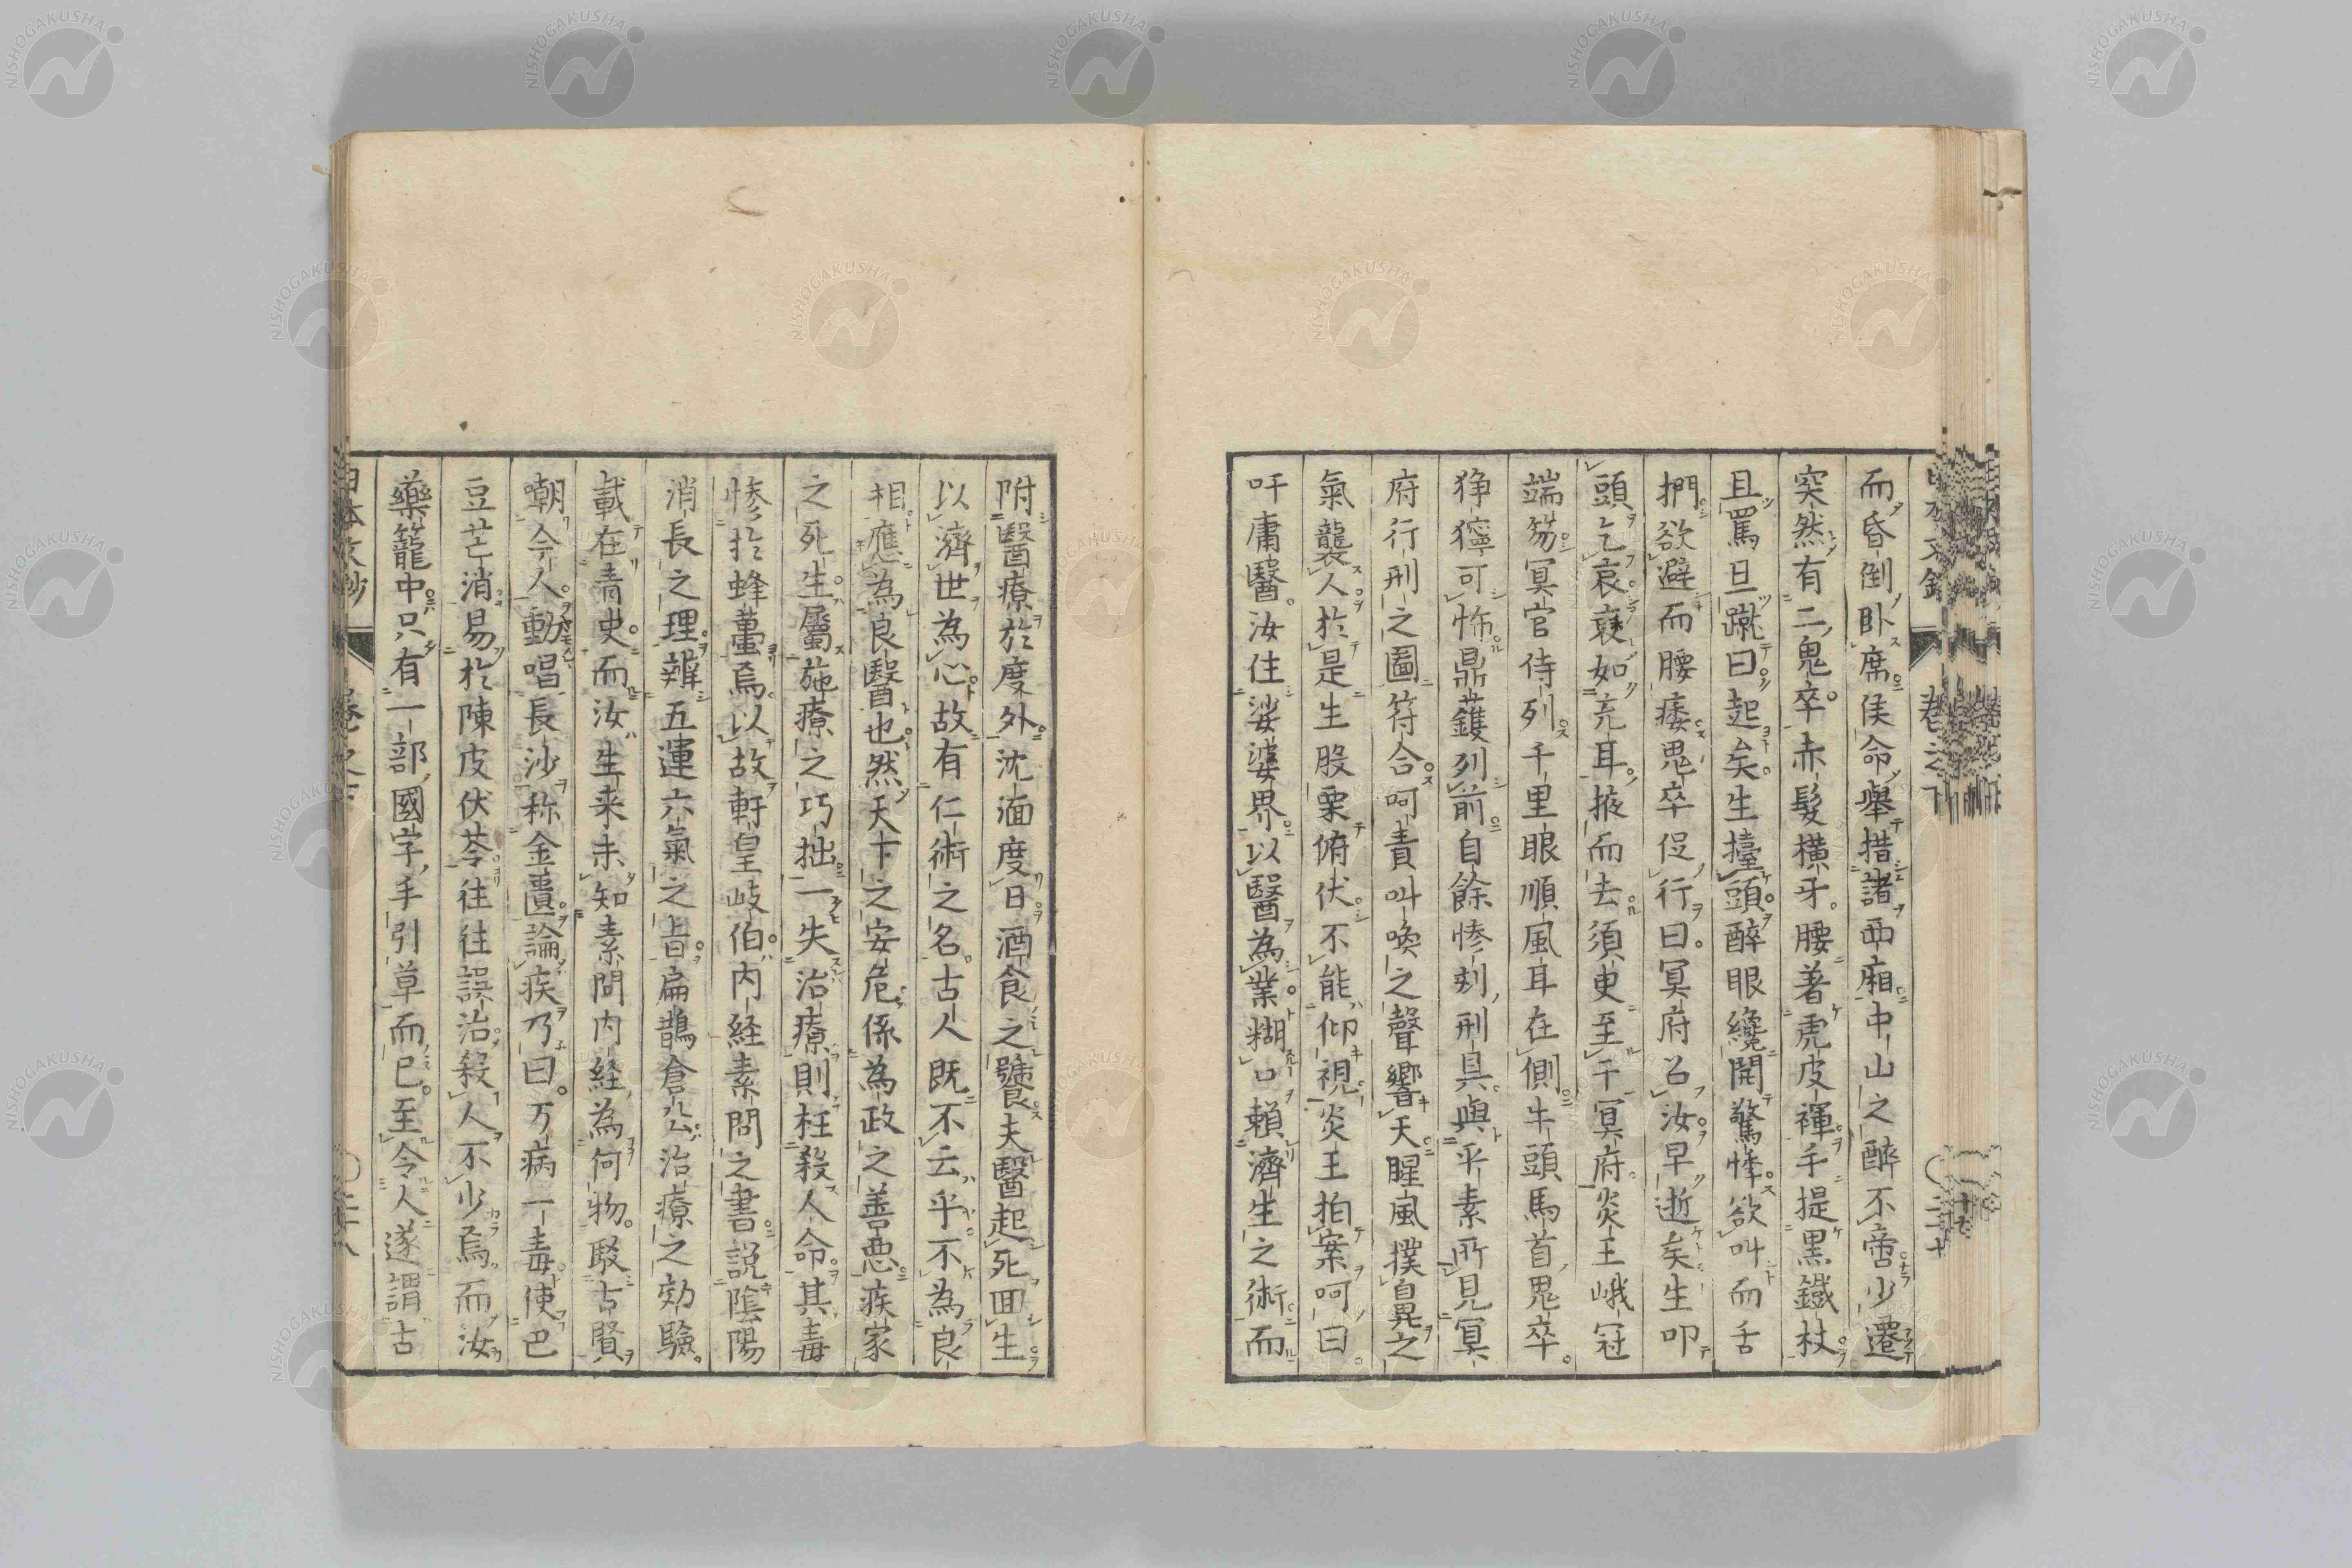 而昏倒卧席俟命舉措諸西廂中山之醉不啻少遷
突然有二鬼卒赤髮橫牙腰著虎皮褌手提黑鐵杖
且罵且蹴曰起矣生擡頭醉眼纔開驚悸欲叫而舌
捫欲避而腰痿鬼卒促行曰冥府召汝早逝矣生叩
頭乞哀褎如充耳掖而去須臾至于冥府炎王峨冠
端笏冥官侍列千里眼順風耳在側牛頭馬首鬼卒
猙獰可怖鼎鑊列前自餘慘刻刑具與乎素所見冥
府行刑之圖符合呵責叫喚之聲響天腥風撲鼻之
氣襲人於是生股栗俯伏不能仰視炎王拍案呵曰
吁庸醫汝住娑婆界以醫為業糊口賴濟生之術而
附醫療於度外沈湎度日酒食之饕夫醫起死回生
以濟世為心故有仁術之名古人既不云乎不為良
相應為良醫也然天下之安危係為政之善惡疾家
之死生屬施療之巧拙一失治療則枉殺人命其毒
慘於蜂蠆焉以故軒皇岐伯內経素問之書説陰陽
消長之理辨五運六氣之旨扁鵲倉公治療之効驗
載在青史而汝生来未知素問内経為何物駁古賢
嘲今人動唱長沙称金匱論疾乃曰万病一毒使巴
豆芒消易於陳皮伏苓往往誤治殺人不少焉而汝
藥籠中只有一部國字手引草而已至令人遂謂古
日本文鈔
卷之下